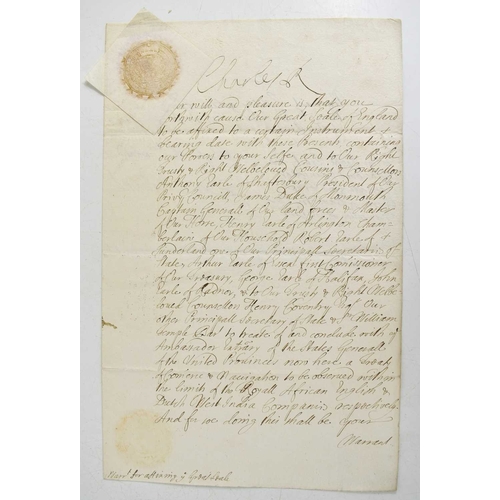 Charles R
Our will and pleasure is that you
forthwith cause Our Great Seale of England
to be affixed to a certain Instrument
bearing date with these Present containing
our Powers to your Selfe, and to Our Right
Trusty & Right Welbeloved Cousins & Counsellors
Anthony Earle of Shaftsbury President of Our
Privy Councill, James Duke of Monmouth
Captain Generall of Our land forces & Master
of Our Horse, Henry Earle of Arlington Cham-
berlaine of Our Household Robert Earle of
Sunderland one of Our Principall Secretarys of
State, Arthur Earle of Essex first Comissioner
of Our Treasury George Earle of Halifax, John
Earle of Radnor, & to Our Trusty & Right Welbe
loved Counsellors Henry Coventry of Our
other Principall Secretary of State & Sr William
Temple to treate of and conclude with ye
Ambassador of the States Generall
of the United Provinces now here a Treaty
of Comerce & Navigation to be observed within
the limits of the Royall African English &
Dutch West India Companies respectively
And for so doing this shall be your
Warrant
Warrt for affixing ye Great Seale